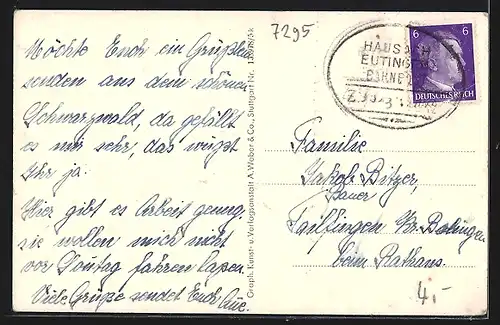 7295
Möchte Euch ein Grüßlein
senden aus dem schönen
Schwarzwald, da gefällt
es mir sehr, das wißt
Ihr ja.
Hier gibt es Arbeit genug,
sie wollen mich nicht
vor Sonntag fahren lassen
Viele Grüße sendet Euch
Graph. Kunst- u. Verlagsanstalt A. Weber & Co., Stuttgart Nr.
HAUSACH
EUTINGEN
BAHNP
6 6
DEUTSCHES REICH
Familie
Jakob Bitzer,
Bauer
Tailfingen Kr. Balingen
beim Rathaus.
4,-